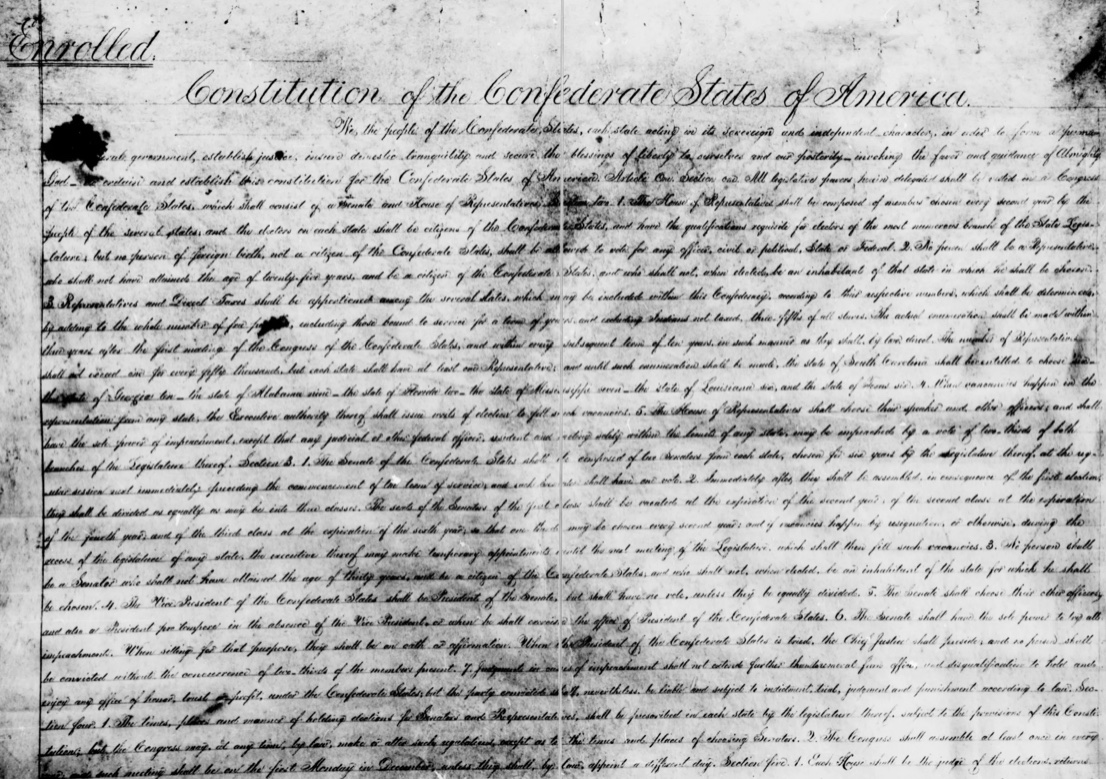 Enrolled.
Constitution of the Confederate States of America.
We, the people of the Confederate States, each state acting in its sovereign and independent character, in order to form a perma-
government, establish justice, insure domestic tranquility and secure the blessings of liberty to ourselves and our posterity — invoking the favor and guidance of Almighty
God — do ordain and establish this constitution for the Confederate States of America. Article One. Section one. All legislative powers herein delegated shall be vested in a Congress
of the Confederate States, which shall consist of a Senate and House of Representatives. Section two. 1. The House of Representatives shall be composed of members chosen every second year by the
people of the several states, and the electors in each state shall be citizens of the Confederate States, and have the qualifications requisite for electors of the most numerous branch of the State Legis-
lature; but no person of foreign birth, not a citizen of the Confederate States, shall be allowed to vote for any officer, civil or political, State or Federal. 2. No person shall be a Representative,
who shall not have attained the age of twenty-five years, and be a citizen of the Confederate States, and who shall not, when elected, be an inhabitant of that state in which he shall be chosen.
3. Representatives and Direct Taxes shall be apportioned among the several states, which may be included within this Confederacy, according to their respective numbers, which shall be determined,
by adding to the whole number of free including those bound to service for a term of years, and excluding Indians not taxed, three fifths of all slaves. The actual enumeration shall be made within
three years after the first meeting of the Congress of the Confederate States, and within every subsequent term of ten years, in such manner as they shall, by law direct. The number of Representatives
shall not exceed one for every fifty thousand, but each state shall have at least one Representative; and until such enumeration shall be made, the state of South Carolina shall be entitled to choose
the state of Georgia ten — the state of Alabama nine — the state of Florida two — the state of Mississippi seven — the state of Louisiana six, and the state of Texas six. 4. When vacancies happen in the
representation from any state, the Executive authority thereof shall issue writs of election to fill such vacancies. 5. The House of Representatives shall choose their speaker and other officers; and shall
have the sole power of impeachment, except that any judicial or other federal officer, resident and acting solely within the limits of any state, may be impeached by a vote of two-thirds of both
branches of the Legislature thereof. Section 3. 1. The Senate of the Confederate States shall be composed of two Senators from each state, chosen for six years by the Legislature thereof, at the reg-
ular session next immediately preceding the commencement of the term of service; and each Senator shall have one vote. 2. Immediately after, they shall be assembled, in consequence of the first election,
they shall be divided as equally as may be into three classes. The seats of the Senators of the first class shall be vacated at the expiration of the second year; of the second class at the expiration
of the fourth year; and of the third class at the expiration of the sixth year; so that one third may be chosen every second year; and if vacancies happen by resignation, or otherwise, during the
recess of the legislature of any state, the executive thereof may make temporary appointments until the next meeting of the Legislature, which shall then fill such vacancies. 3. No person shall
be a Senator who shall not have attained the age of thirty years, and be a citizen of the Confederate States, and who shall not, when elected, be an inhabitant of the state for which he shall
be chosen. 4. The Vice President of the Confederate States shall be President of the Senate, but shall have no vote, unless they be equally divided. 5. The Senate shall choose their other officers,
and also a President pro tempore in the absence of the Vice President, or when he shall exercise the office of President of the Confederate States. 6. The Senate shall have the sole power to try all
impeachments. When sitting for that purpose, they shall be on oath or affirmation. When the President of the Confederate States is tried, the Chief Justice shall preside, and no person shall
be convicted without the concurrence of two-thirds of the members present. 7. Judgments in cases of impeachment shall not extend further than removal from office, and disqualification to hold and
enjoy any office of honor, trust or profit, under the Confederate States; but the party convicted shall, nevertheless, be liable and subject to indictment, trial, judgment and punishment according to law. Sec-
tion four. 1. The times, places and manner of holding elections for Senators and Representatives, shall be prescribed in each state by the legislature thereof, subject to the provisions of this Consti-
tution; but the Congress may, at any time, by law, make or alter such regulations, except as to the times and places of choosing Senators. 2. The Congress shall assemble at least once in every
year, and such meeting shall be on the first Monday in December, unless they shall, by law, appoint a different day. Section five. 1. Each House shall be the judge of the elections, returns